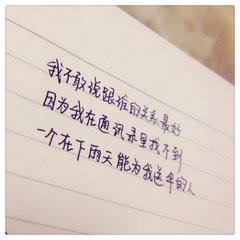 我不敢说跟谁的关系最好
因为我在通讯录里找不到
一个在下雨天能为我送伞的人